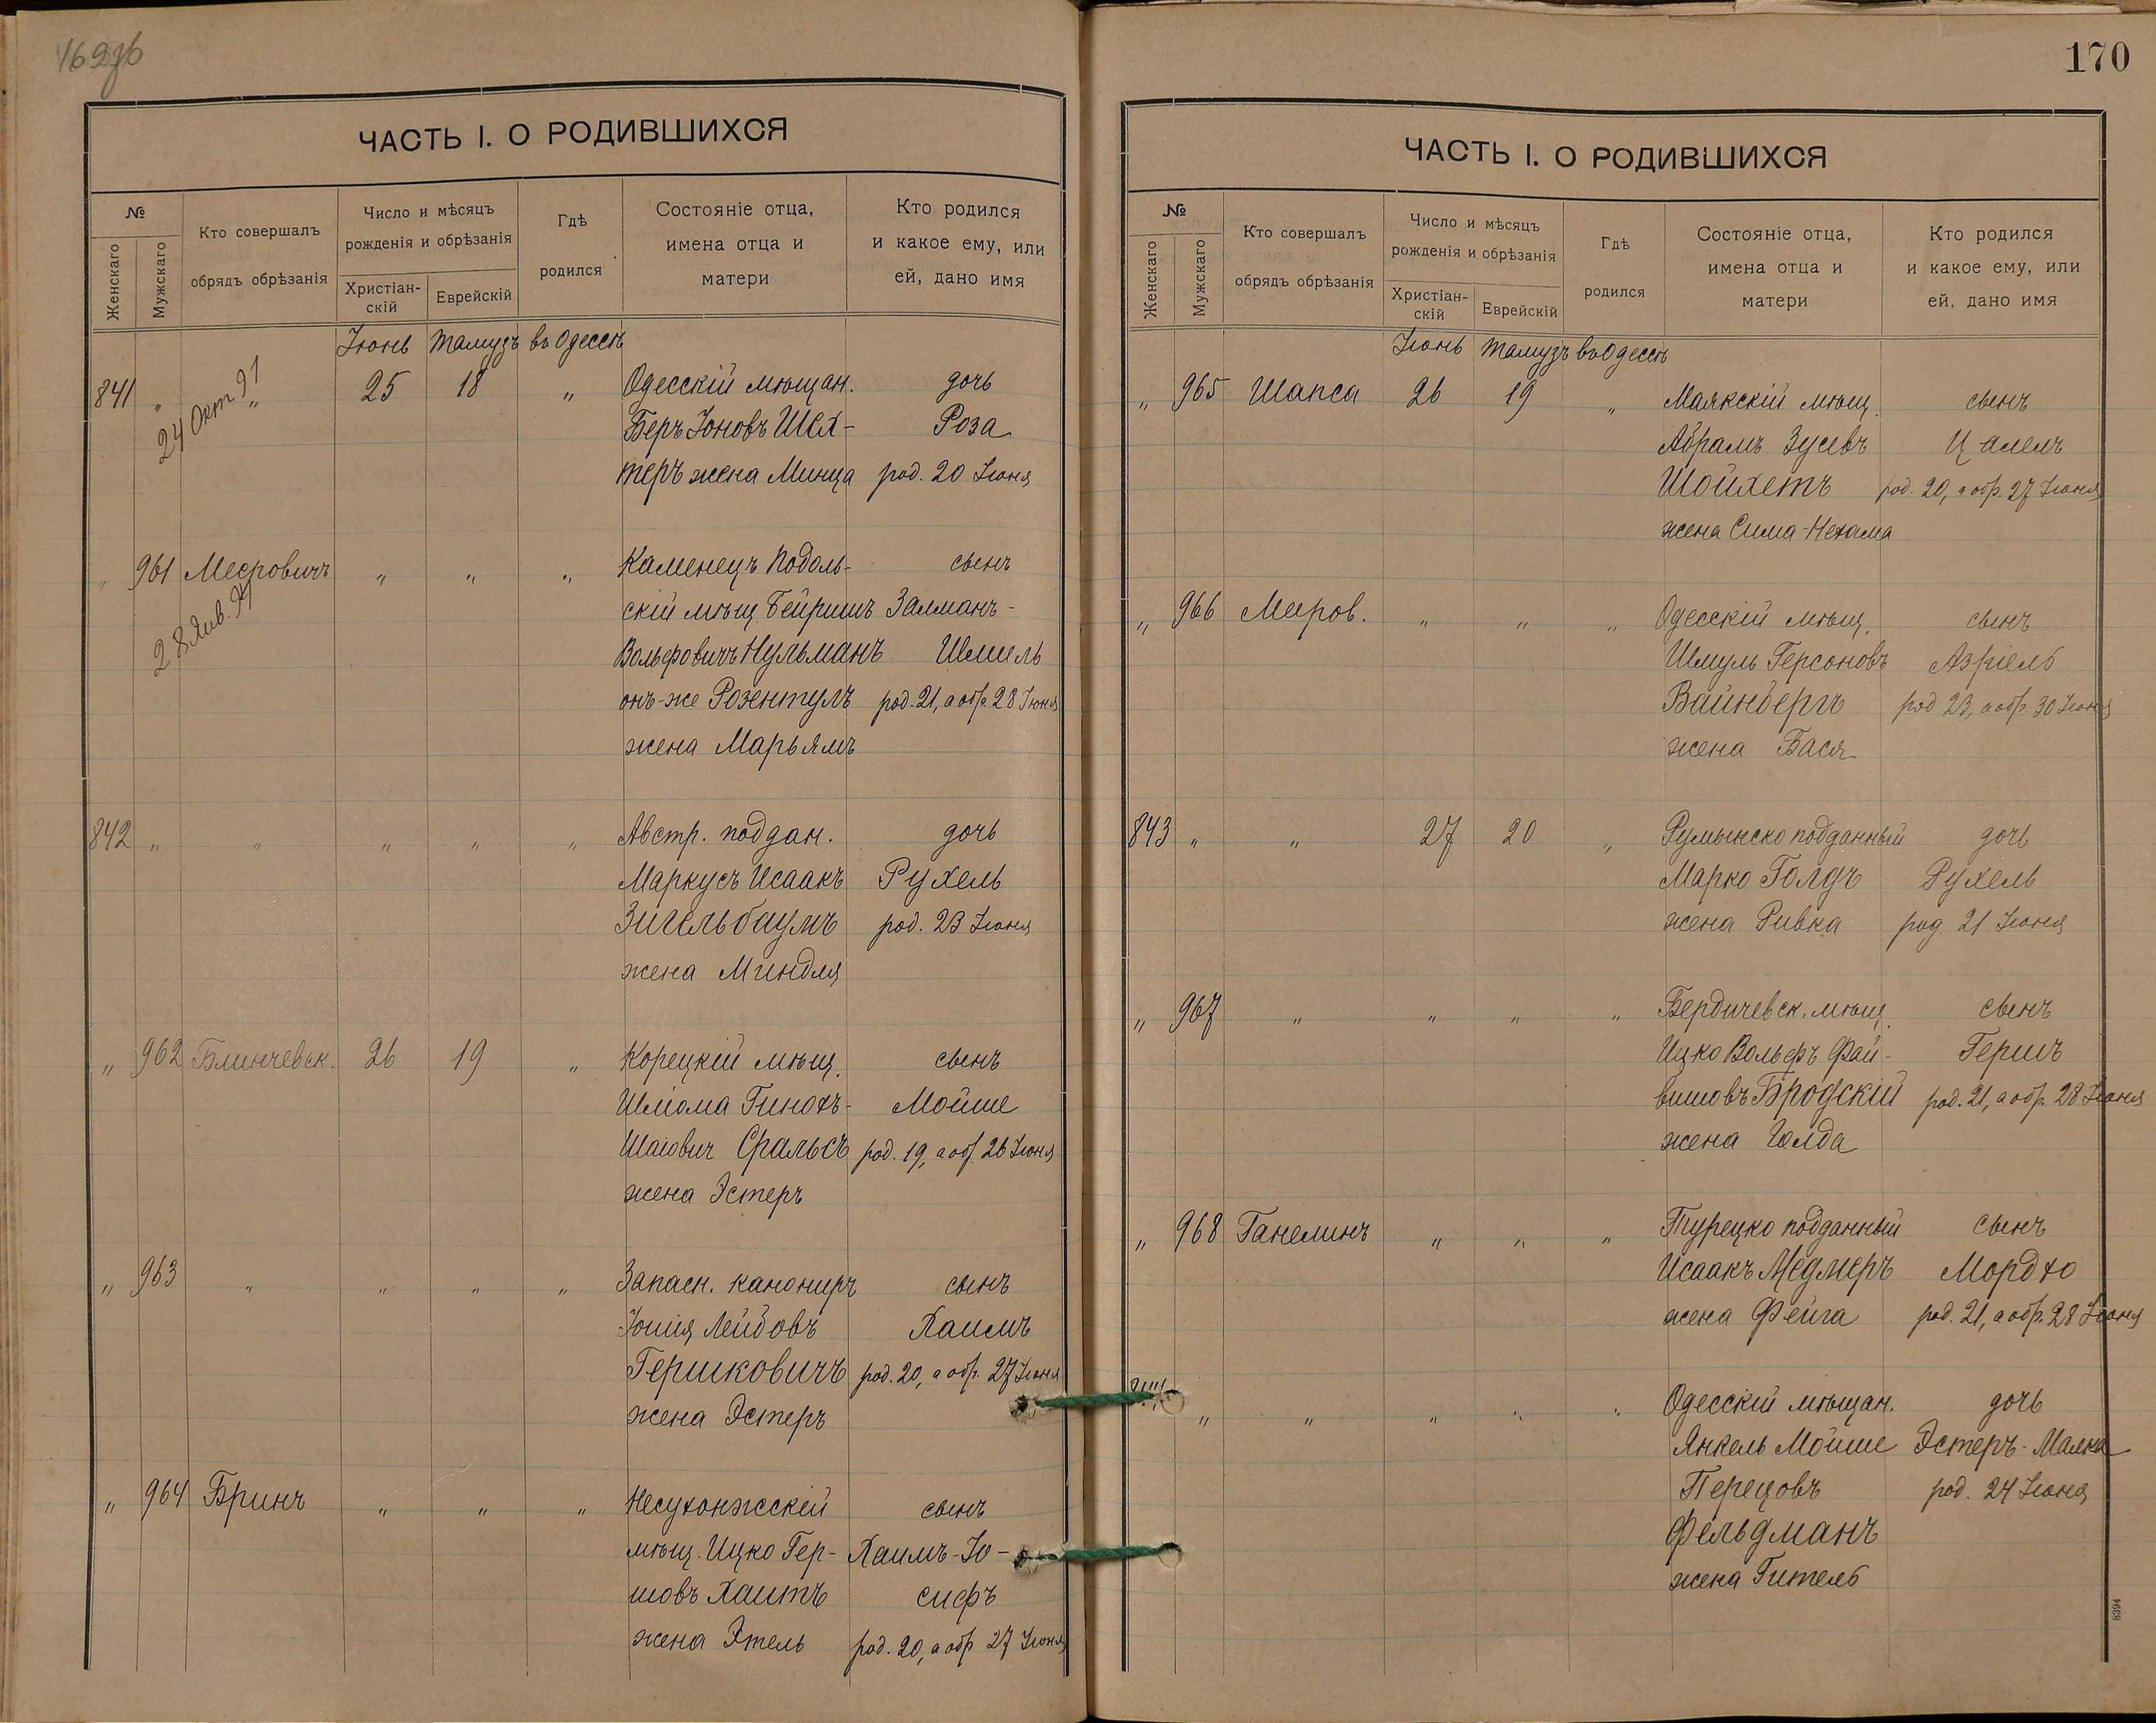 169 об
ЧАСТЬ I. О РОДИВШИХСЯ
№
Женскаго
Мужскаго
Кто совершалъ
обрядъ обрѣзанія
Число и мѣсяцъ
рожденія и обрѣзанія
Христіан-
скій
Еврейскій
Гдѣ
родился
Состояніе отца,
имена отца и
матери
Кто родился
и какое ему, или
ей, дано имя
Іюнь Тамузъ въ Одессѣ
841 " " 25 18 " Одесскій мѣщан. дочь
24 Окт 91
Беръ Іоновъ Шех- Роза
теръ жена Минца род. 20 Іюня
" 961 Меeровичъ " " " Каменецъ Подоль- сынъ
28 Янв.
скій мѣщ. Бейришъ Залманъ-
Вольфовичъ Нульманъ Шмиль
онъ-же Розентулъ род. 21, а обр. 28 Іюня
жена Марьямъ
842 " " " " " Австр. поддан. дочь
Маркусъ Исаакъ Рухель
Зигельбаумъ род. 23 Іюня
жена Миндля
" 962 Блинчевск. 26 19 " Корецкій мѣщ. сынъ
Шліома Гинохъ- Мойше
Шаіович Сральсъ род. 19, а обр. 26 Іюня
жена Эстеръ
" 963 " " " " Запасн. канониръ сынъ
Іошія Лейбовъ Хаимъ
Гершковичъ род. 20, а обр. 27 Іюня
жена Эстеръ
" 964 Бринъ " " " Несухоижсскій сынъ
мѣщ. Ицко Гер- Хаимъ-Іо-
шовъ Хаитъ сифъ
жена Этель род. 20, а обр 27 Іюня
170
ЧАСТЬ I. О РОДИВШИХСЯ
№
Женскаго
Мужскаго
Кто совершалъ
обрядъ обрѣзанія
Число и мѣсяцъ
рожденія и обрѣзанія
Христіан-
скій
Еврейскій
Гдѣ
родился
Состояніе отца,
имена отца и
матери
Кто родился
и какое ему, или
ей, дано имя
Іюнь Тамузъ въ Одессѣ
" 965 Шапса 26 19 " Маякскій мѣщ. сынъ
Абрамъ Зусевъ Цалелъ
Шойхетъ род. 20, а обр. 27 Іюня
жена Сима-Нехама
" 966 Меров. " " " Одесскій мѣщ. сынъ
Шмуль Герсоновъ Азріель
Вайнбергъ род 23, а обр. 30 Іюня
жена Бася
843 " " 27 20 " Румынско подданный дочь
Марко Голдъ Рухель
жена Ривка род. 21 Іюня
" 967 " " " " Бердичевск. мѣщ. сынъ
Ицко Вольфъ Фай- Гершъ
вишовъ Бродскій род. 21, а обр. 28 Іюня
жена Голда
" 968 Ганелинъ " " " Турецко подданный сынъ
Исаакъ Медмеръ Мордхо
жена Фейга род. 21, а обр. 28 Іюня
" " " " " Одесскій мѣщан. дочь
Янкель Мойше Эстеръ-Малка
Перецовъ род. 24 Іюня
Фельдманъ
жена Гитель
8394